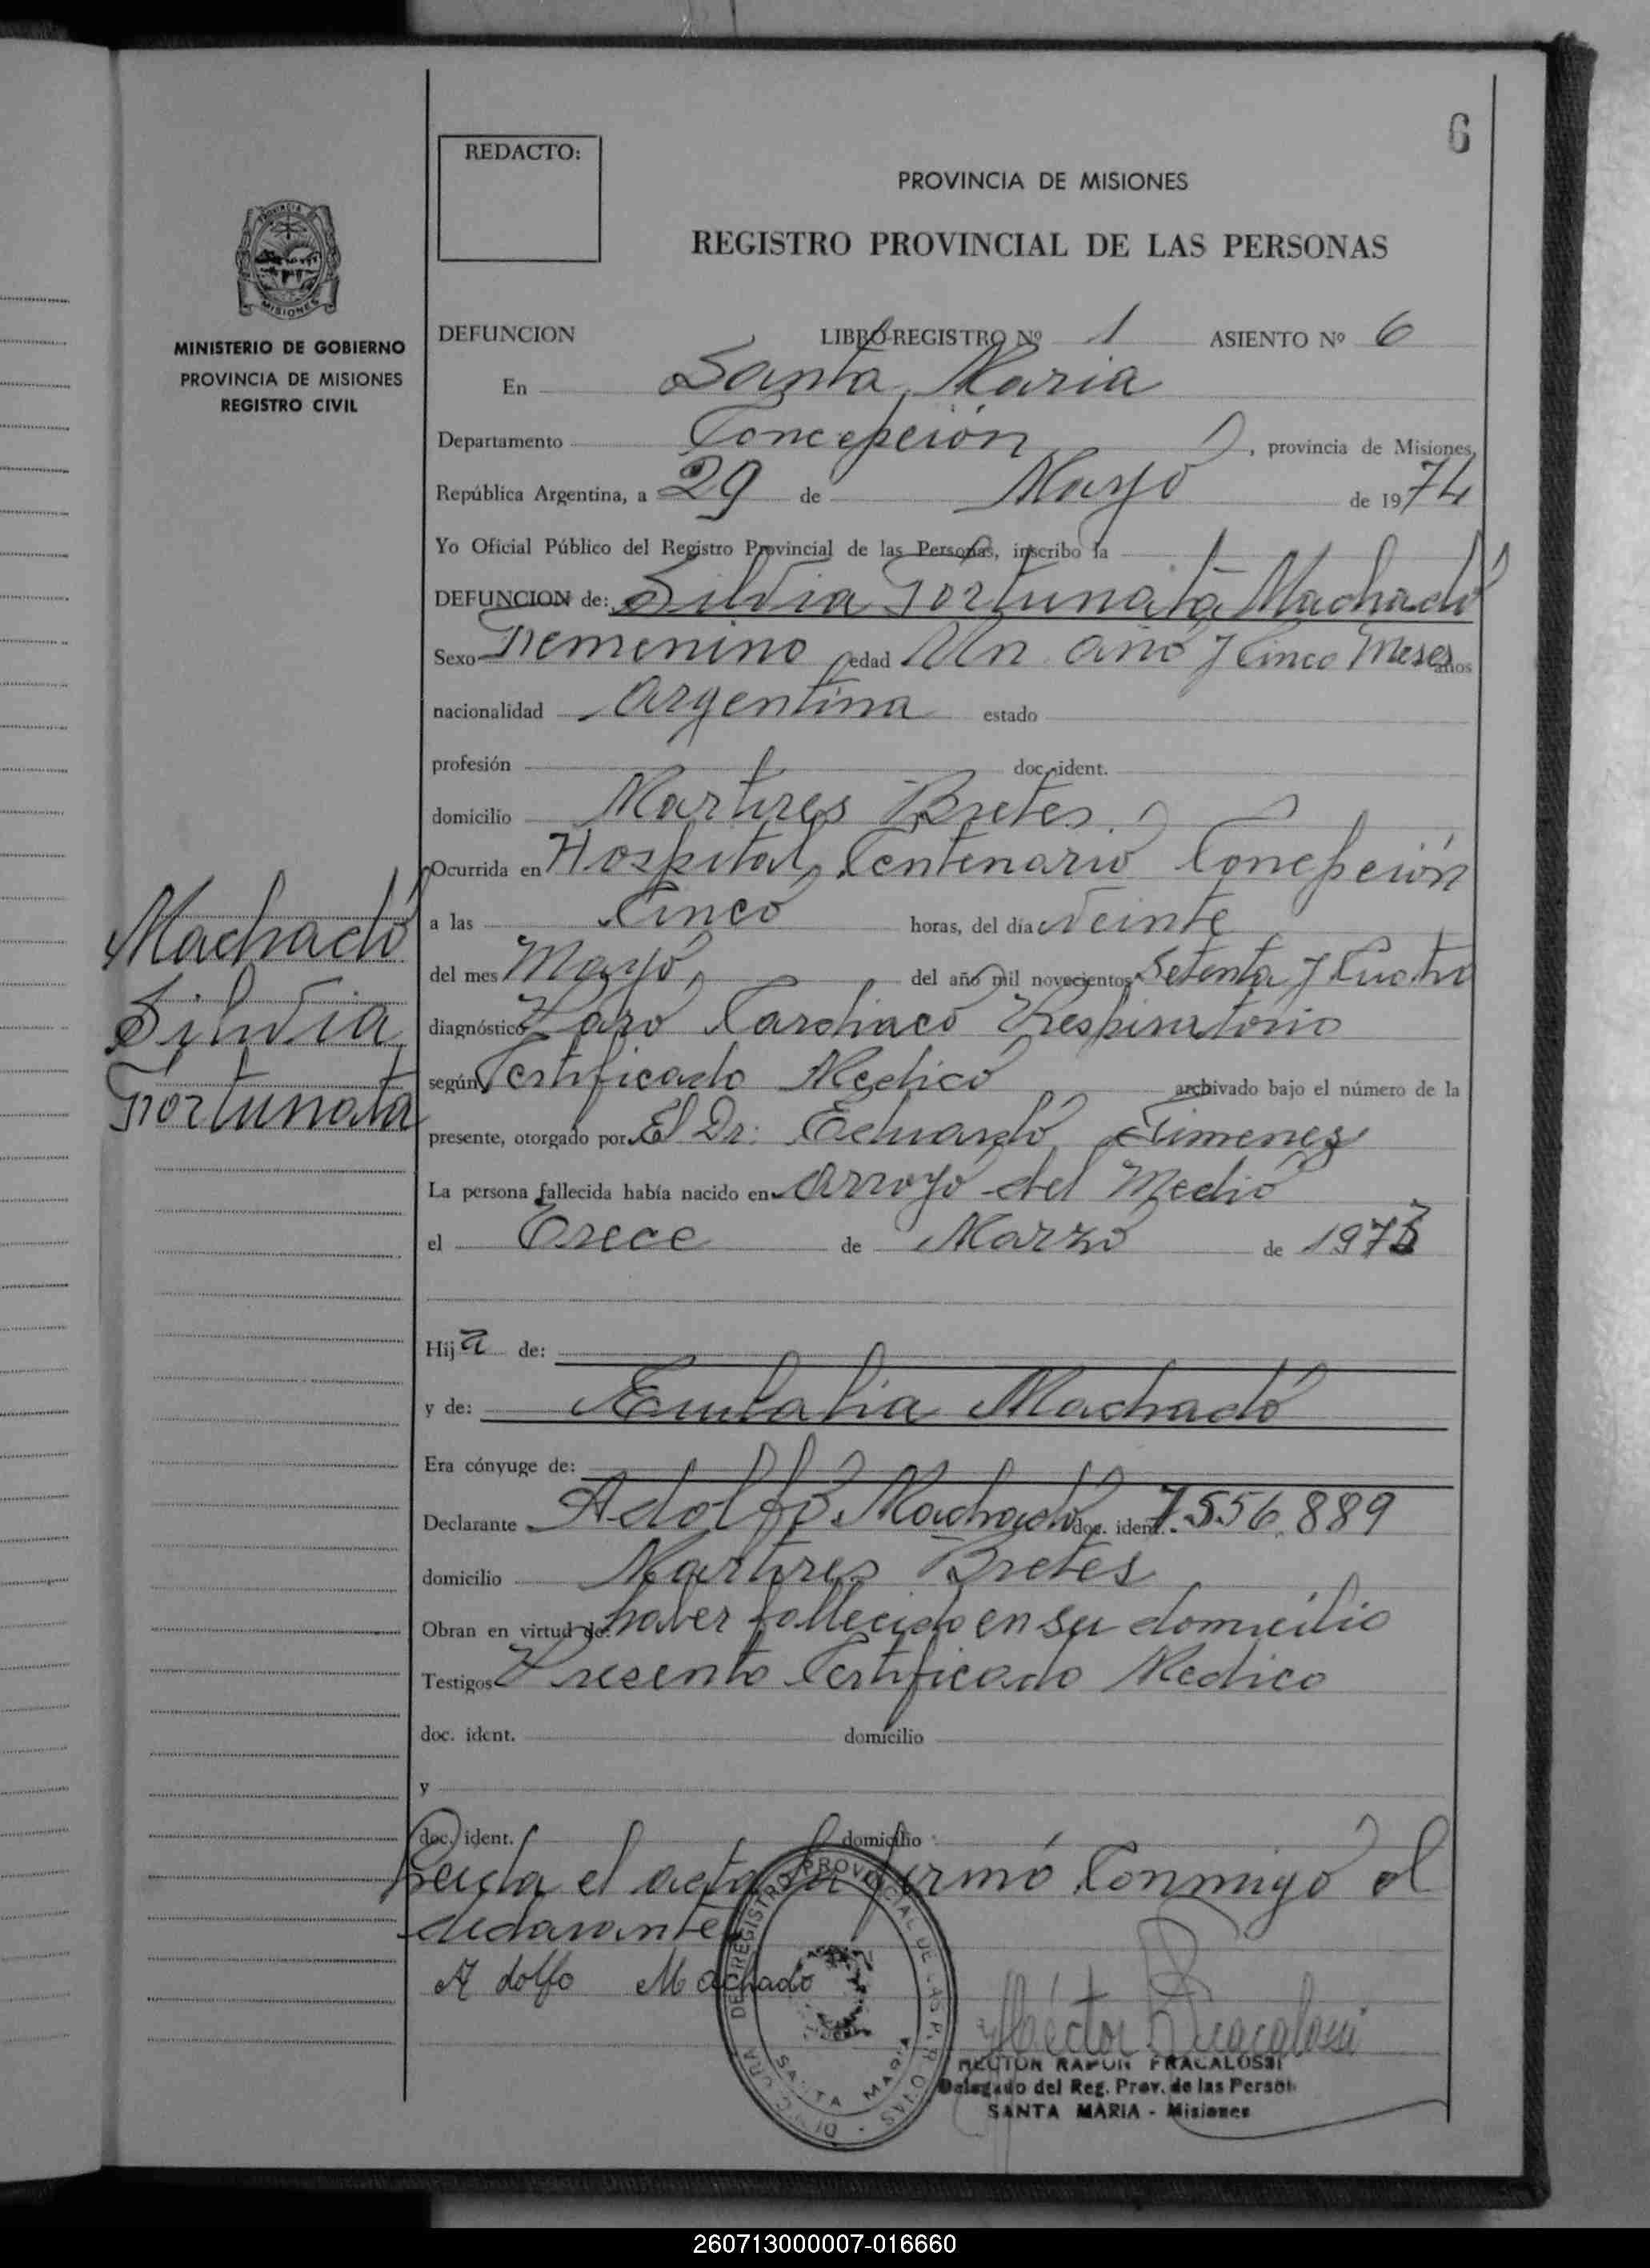 6
REDACTO:
PROVINCIA DE MISIONES
REGISTRO PROVINCIAL DE LAS PERSONAS
PROVINCIA DE
MISIONES
MINISTERIO DE GOBIERNO
PROVINCIA DE MISIONES
REGISTRO CIVIL
DEFUNCION LIBRO-REGISTRO Nº 1 ASIENTO Nº 6
En Santa Maria
Departamento Concepción, provincia de Misiones,
República Argentina, a 29 de Mayo de 1974
Yo Oficial Público del Registro Provincial de las Personas, inscribo la
DEFUNCION de: Silvia Fortunata Machado
Sexo Femenino edad Un año y Cinco Meses años
nacionalidad Argentina estado
profesión doc. ident.
domicilio Martires Bretes
Ocurrida en Hospital Centenario Concepción
a las Cinco horas, del dia Veinte
del mes Mayo, del año mil novecientos Setenta y Cuatro
diagnóstico Paro Cardiaco Respiratorio
según Certificado Medico archivado bajo el número de la
presente, otorgado por El Dr: Eduardo Jimenez
La persona fallecida había nacido en Arroyo del Medio
el Trece de Marzo de 1973
Machado
Silvia
Fortunata
Hija de:
y de: Eulalia Machado
Era cónyuge de:
Declarante Adolfo Machado doc. ident. 7.556.889
domicilio Martires Bretes
Obran en virtud de: haber fallecido en su domicilio
Testigos Presento Certificado Medico
doc. ident. domicilio
y
doc. ident. domicilio
Leida el acta la firmó Conmigo el
declarante
Adolfo Machado
REGISTRO PROVINCIAL DE LAS PERSONAS
SANTA MARIA
HECTOR RAMON FRACALOSSI
Delegado del Reg. Prov. de las Person.
SANTA MARIA - Misiones
260713000007-016660